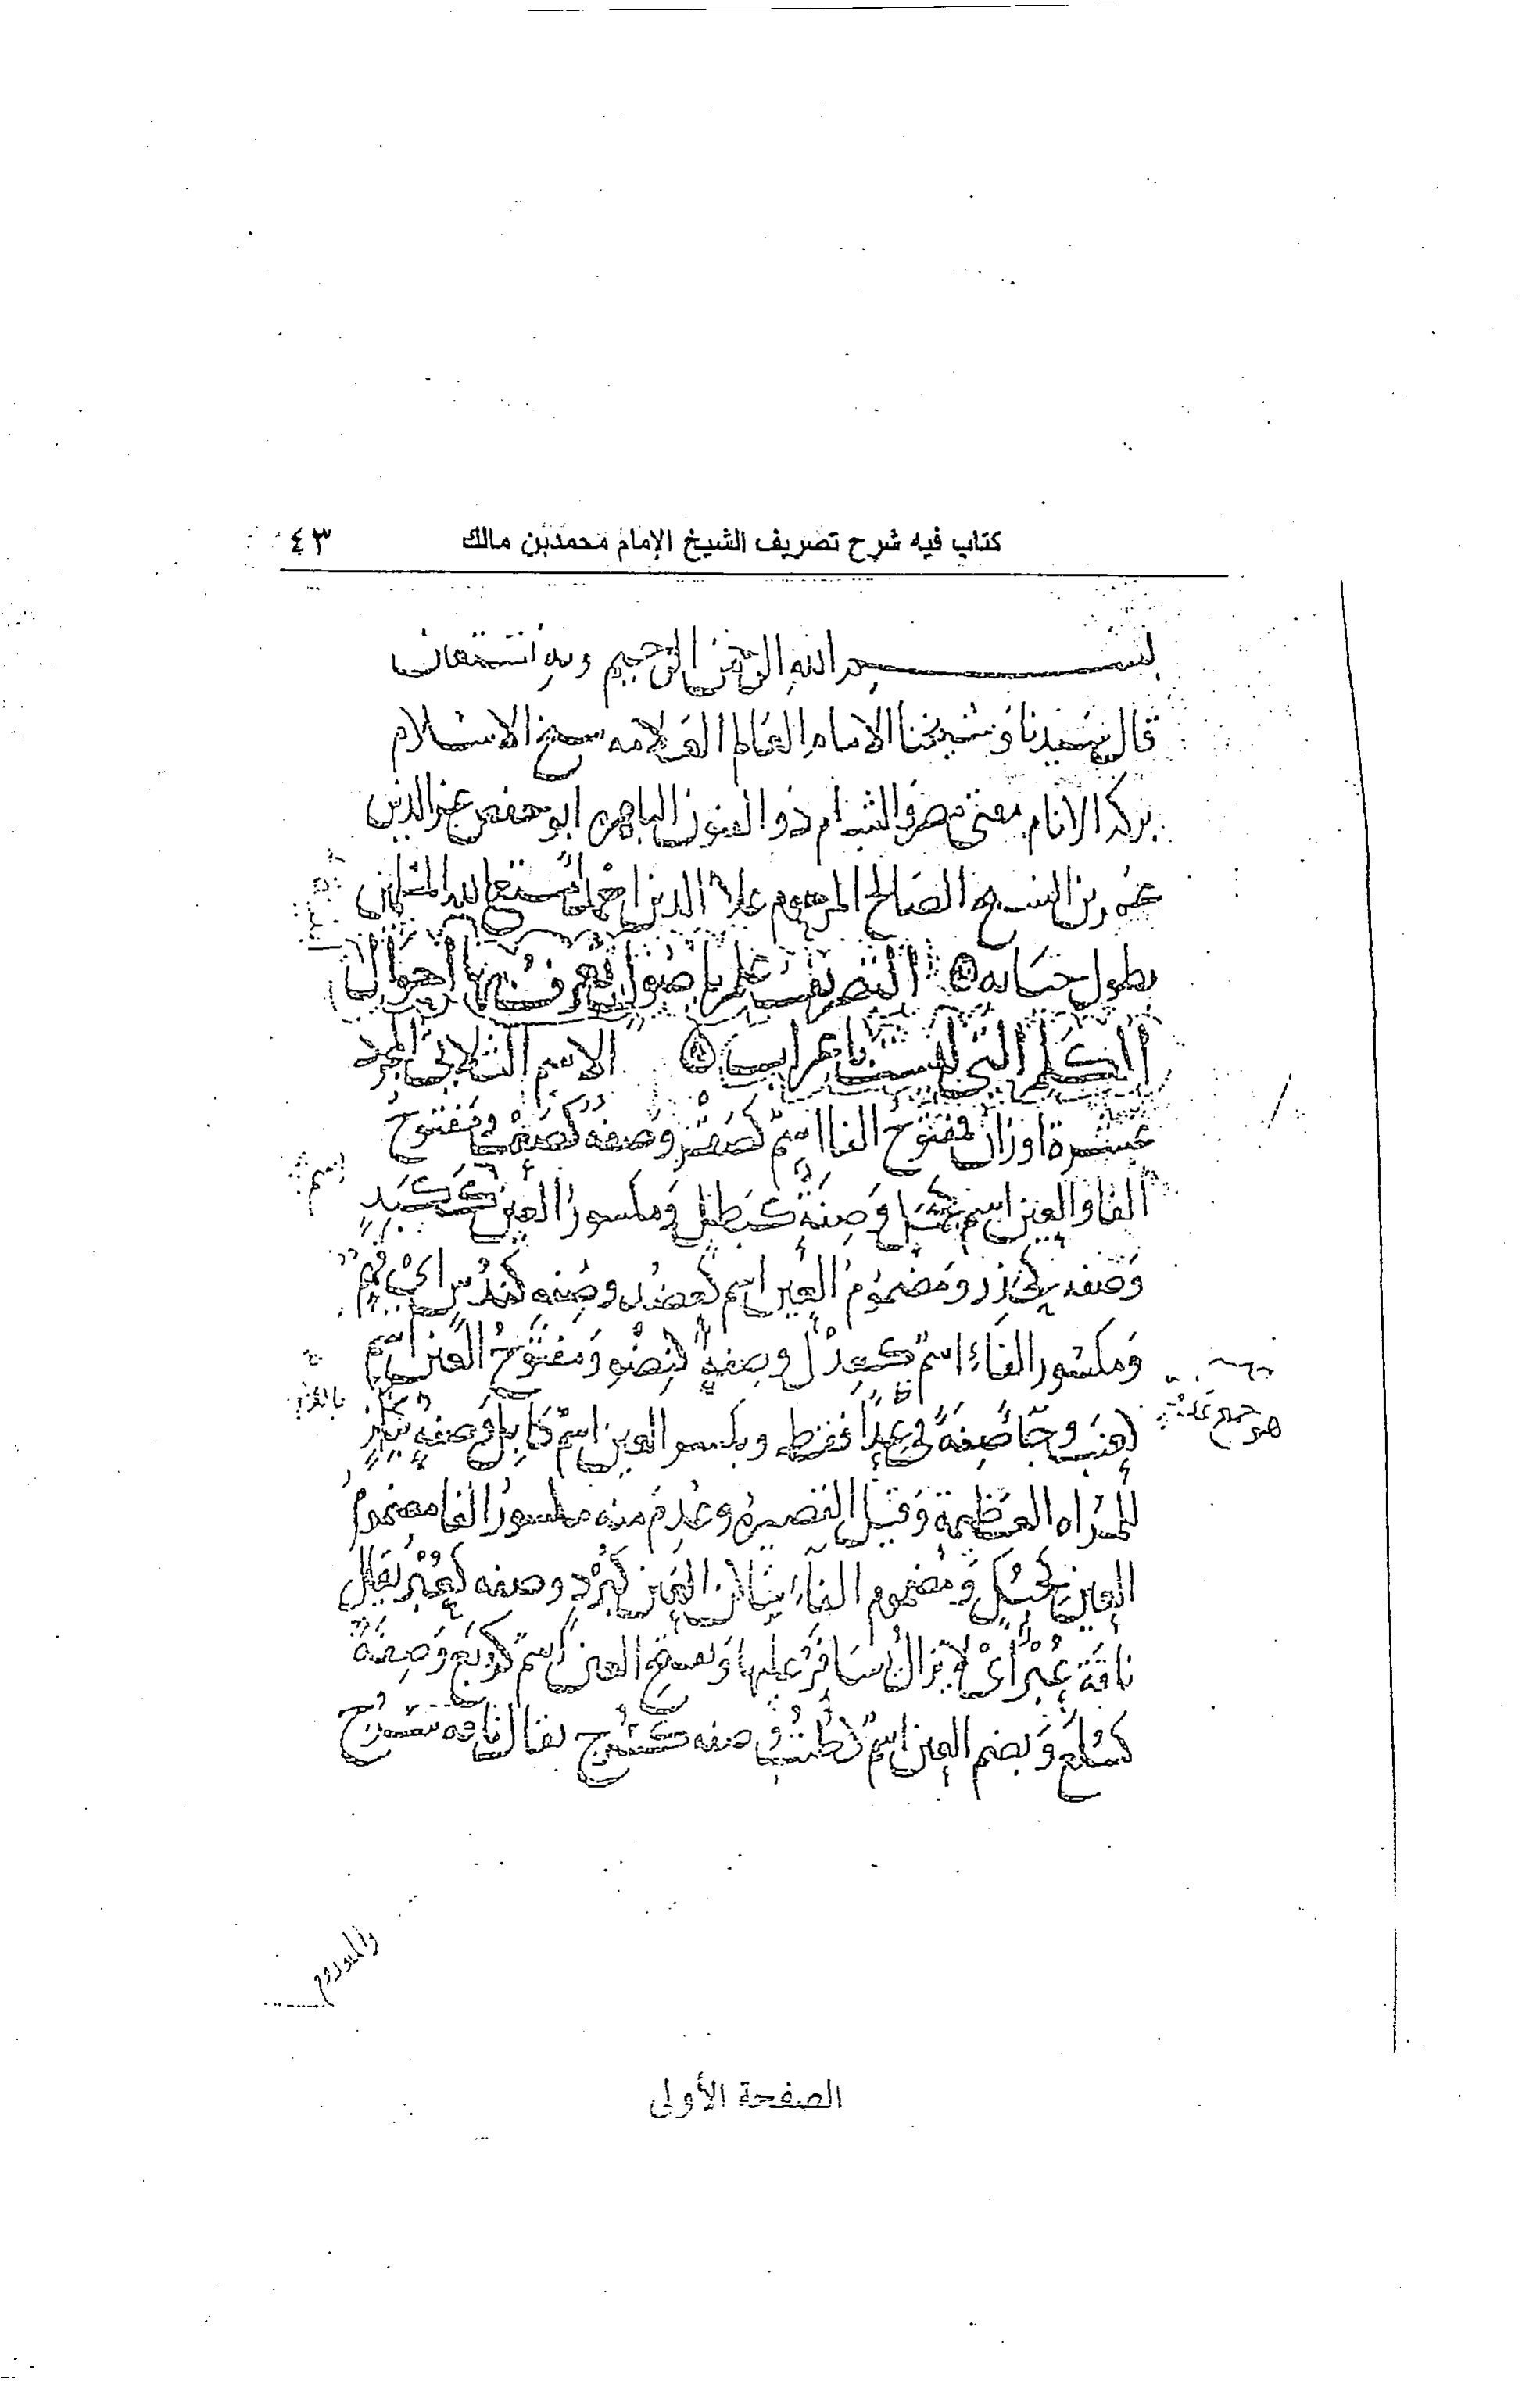 كتاب فيه شرح تصريف الشيخ الإمام محمد بن مالك ٤٣
بسم الله الرحمن الرحيم وبه نستعين
قال سيدنا وشيخنا الامام العالم العلامه شيخ الاسلام
بركة الانام مفتي مصر والشام ذو الفنون ابو حفص عز الدين
عمر بن الشيخ الصالح المرحوم علاء الدين احمد متع الله المسلمين
بطول حياته التصريف علم باصول تعرف بها احوال
الكلم التي ليست باعراب الاسم الثلاثي المجرد
عشرة اوزان مفتوح الفا اسم كصقر وصفه كصعب ومفتوح
الفا والعين اسم وصفة كبطل ومكسور العين ككبد اسم
وصفه كحذر ومضموم العين اسم كعضد وصفه كندس اي فهم
ومكسور الفاء اسم كعدل وصفة كنضو ومفتوح العين اسم
كعنب وجا صفة في عدا فقط وبكسر العين اسم كابل وصفه كبلز
هو جمع
للمراه العظيمة وقيل القصيره وعدم منه مكسور الفا مضموم
العين كحبك ومضموم الفاء ساكن العين كبرد وصفه كعبر يقال
ناقة عبر اي لا يزال يسافر عليها وبفتح العين اسم كربع وصفة
كختع وبضم العين اسم كطنب وصفه كسرح يقال ناقه سرح
الصفحة الأولى